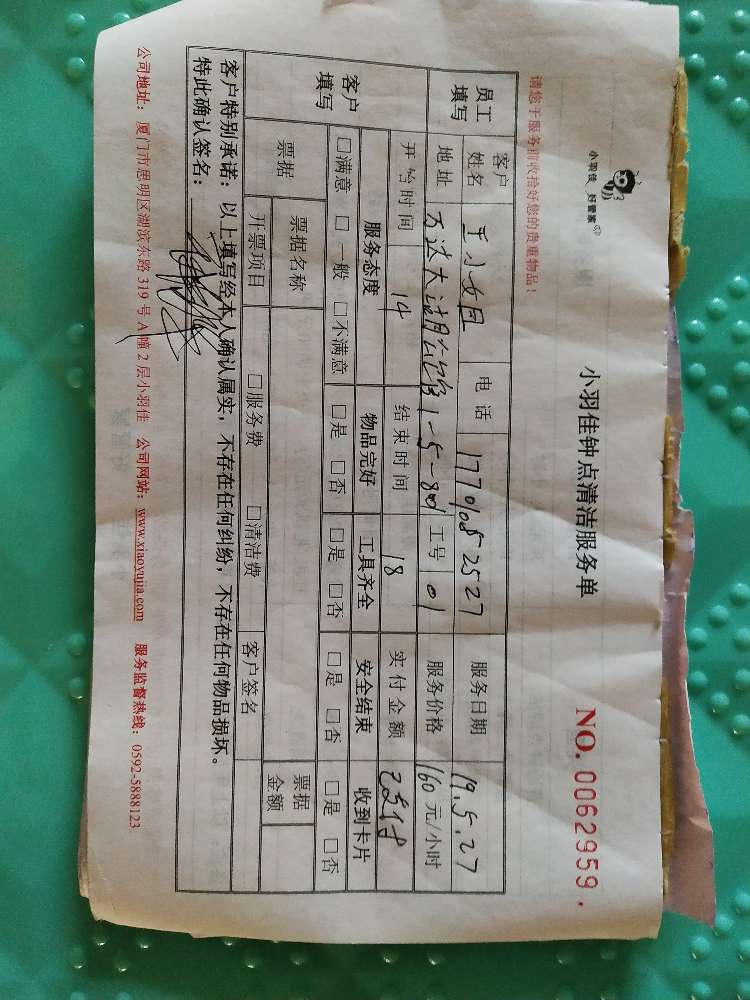 小羽佳 好管家
小羽佳钟点清洁服务单
NO. 0062959
请您于服务前收拾好您的贵重物品！
员工填写 客户姓名 电话 17701052527 服务日期 19.5.27
地址 1-5-801 工号 01 服务价格 160 元/小时
开始时间 14 结束时间 18 实付金额 已支付
客户填写 服务态度 物品完好 工具齐全 安全结束 收到卡片
□满意 □一般 □不满意 □是 □否 □是 □否 □是 □否 □是 □否
票据 票据名称 票据金额
开票项目 □服务费 □清洁费 客户签名
客户特别承诺：以上填写经本人确认属实，不存在任何纠纷，不存在任何物品损坏。
特此确认签名：
公司地址：厦门市思明区湖滨东路 319 号 A 幢 2 层小羽佳 公司网站：www.xiaoyujia.com 服务监督热线：0592-5888123